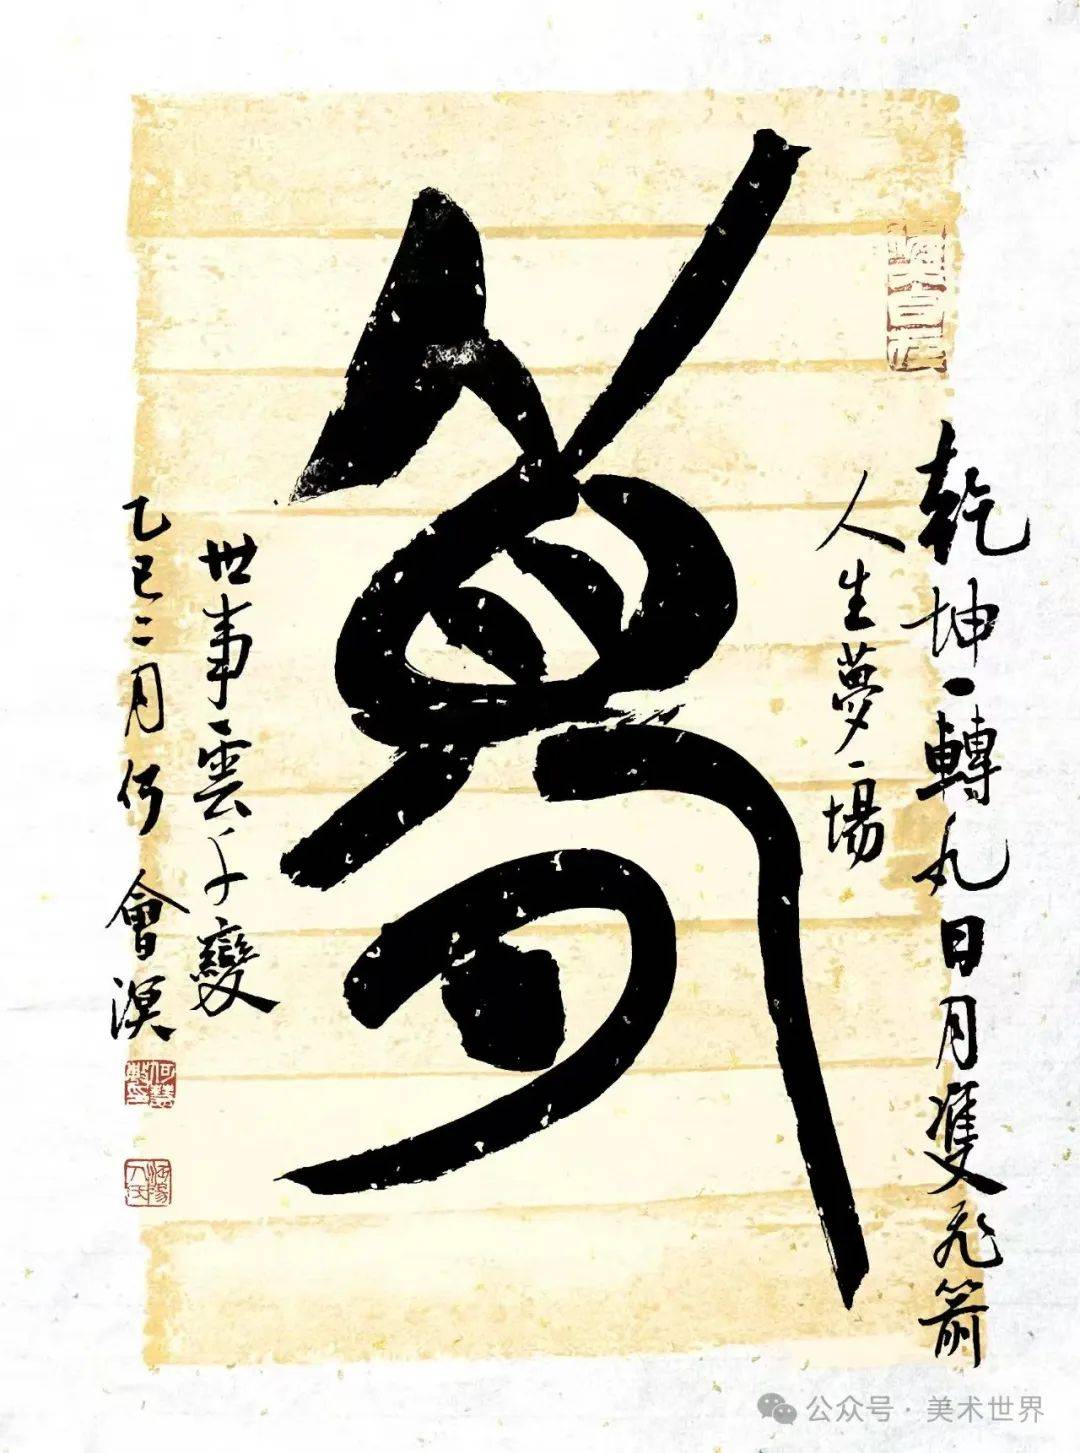 夢
乾坤一轉丸日月雙飛箭
人生夢一場
世事雲千變
乙巳二月何會溟
公众号·美术世界